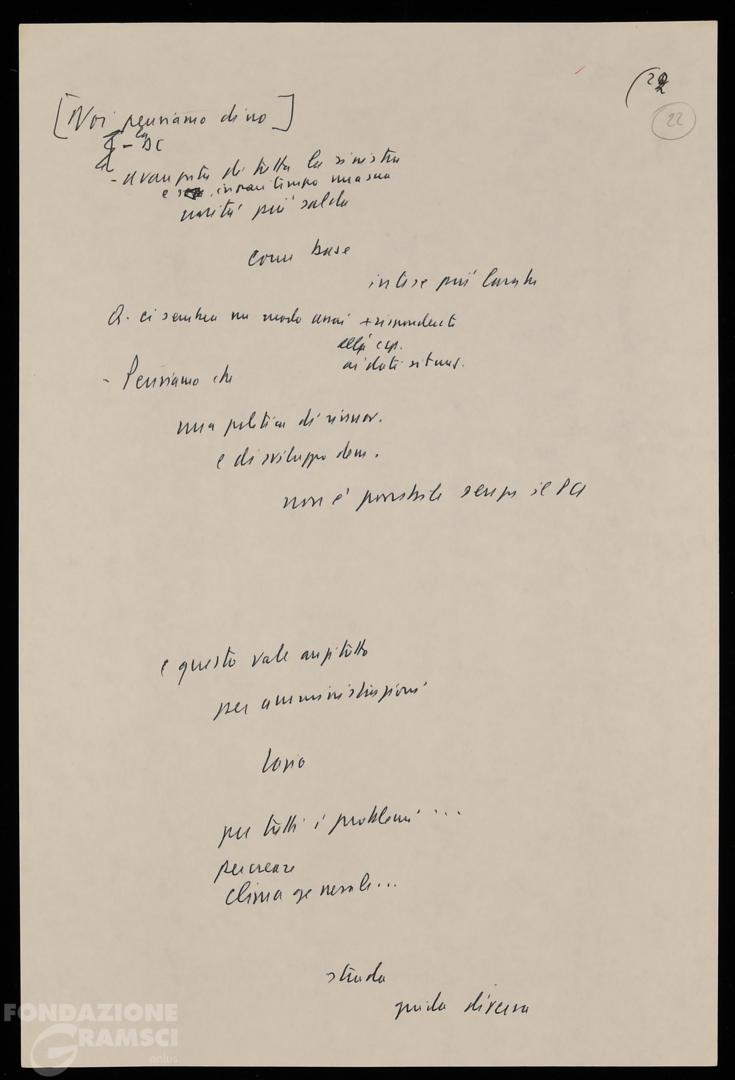 (22
22
[Noi pensiamo di no]
- la DC
- avanzata di tutta la sinistra
e in pari tempo una sua
unità più salda
come base
intese più larghe
ci sembra un modo assai + rispondente
ai dati situaz.
- Pensiamo che
una politica di rinnov.
e di sviluppo dem.
non è possibile senza il PCI
e questo vale anzitutto
per amministrazioni
Lazio
per tutti i problemi ...
per creare
clima generale...
strada
guida diversa
FONDAZIONE
GRAMSCI
onlus